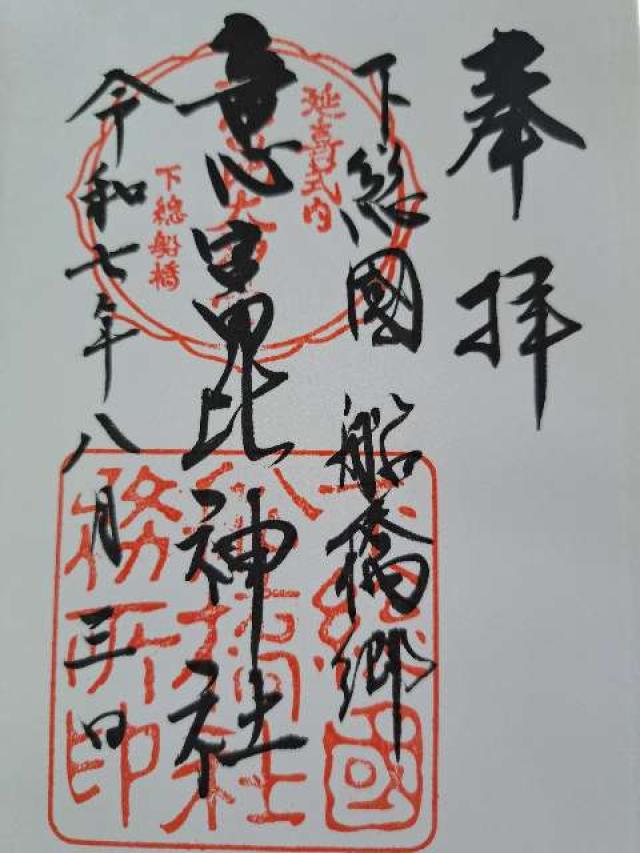 奉拝
下総國 船橋郷
意富比神社
令和七年八月三日
延喜式内
下總船橋
下總國
船橋社
務所印